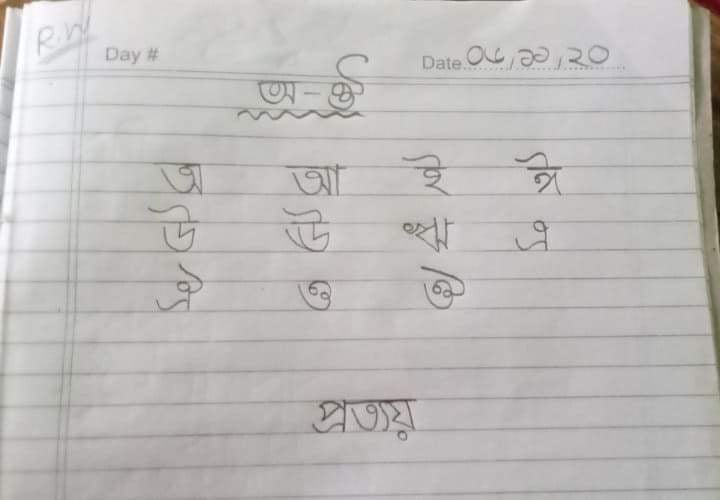 R.W
Day # Date ০৮, ১০, ২০
অ-ঔ
অ আ ই ঈ
উ ঊ ঋ এ
ঐ ও ঔ
প্রত্যয়